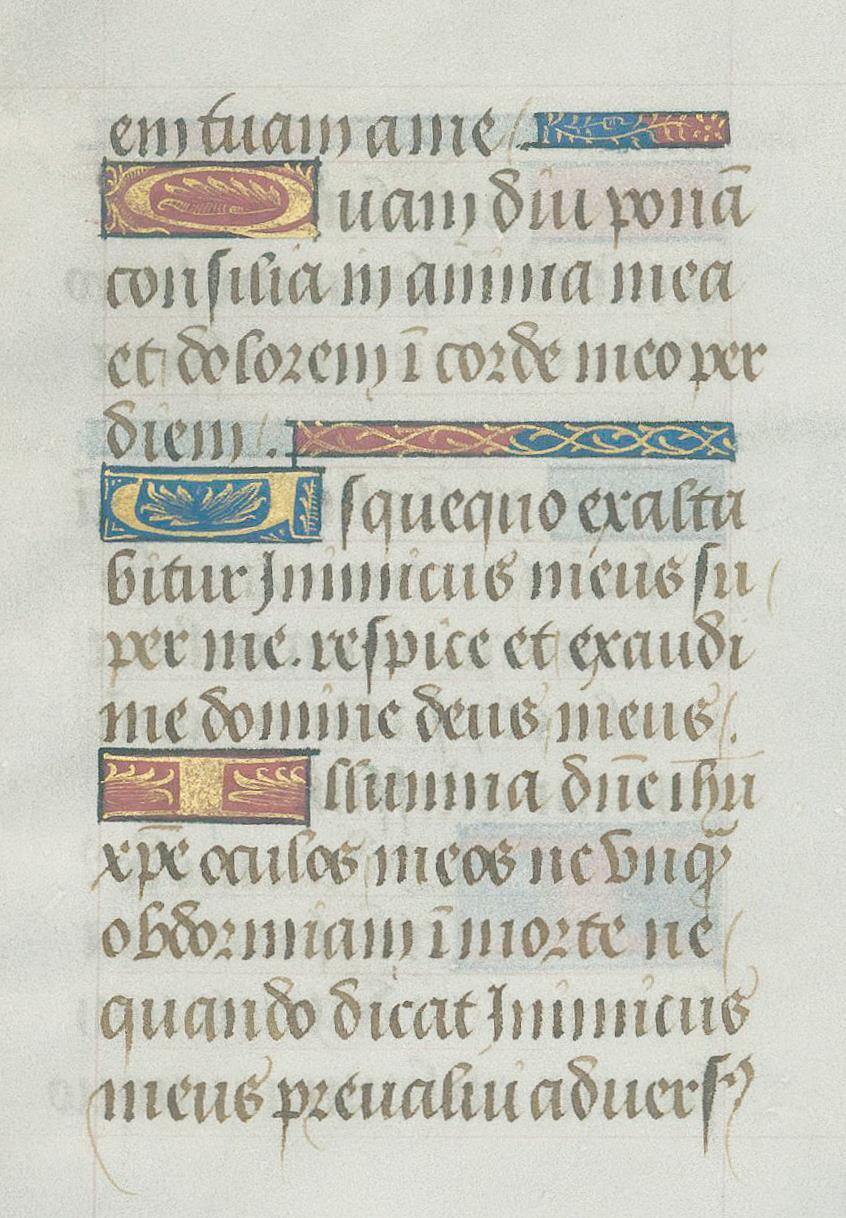 em tuam a me /.
Quam diu ponā
consilia in anima mea
et dolorem ī corde meo per
diem /.
Usquequo exalta
bitur Inimicus meus su /
per me. respice et exaudi
me domine deus meus /.
Illumina dn̄e ihū
xp̄e oculos meos ne vnqꝫ̄
obdormiam ī morte ne /
quando dicat Inimicus
meus preualui aduersꝰ